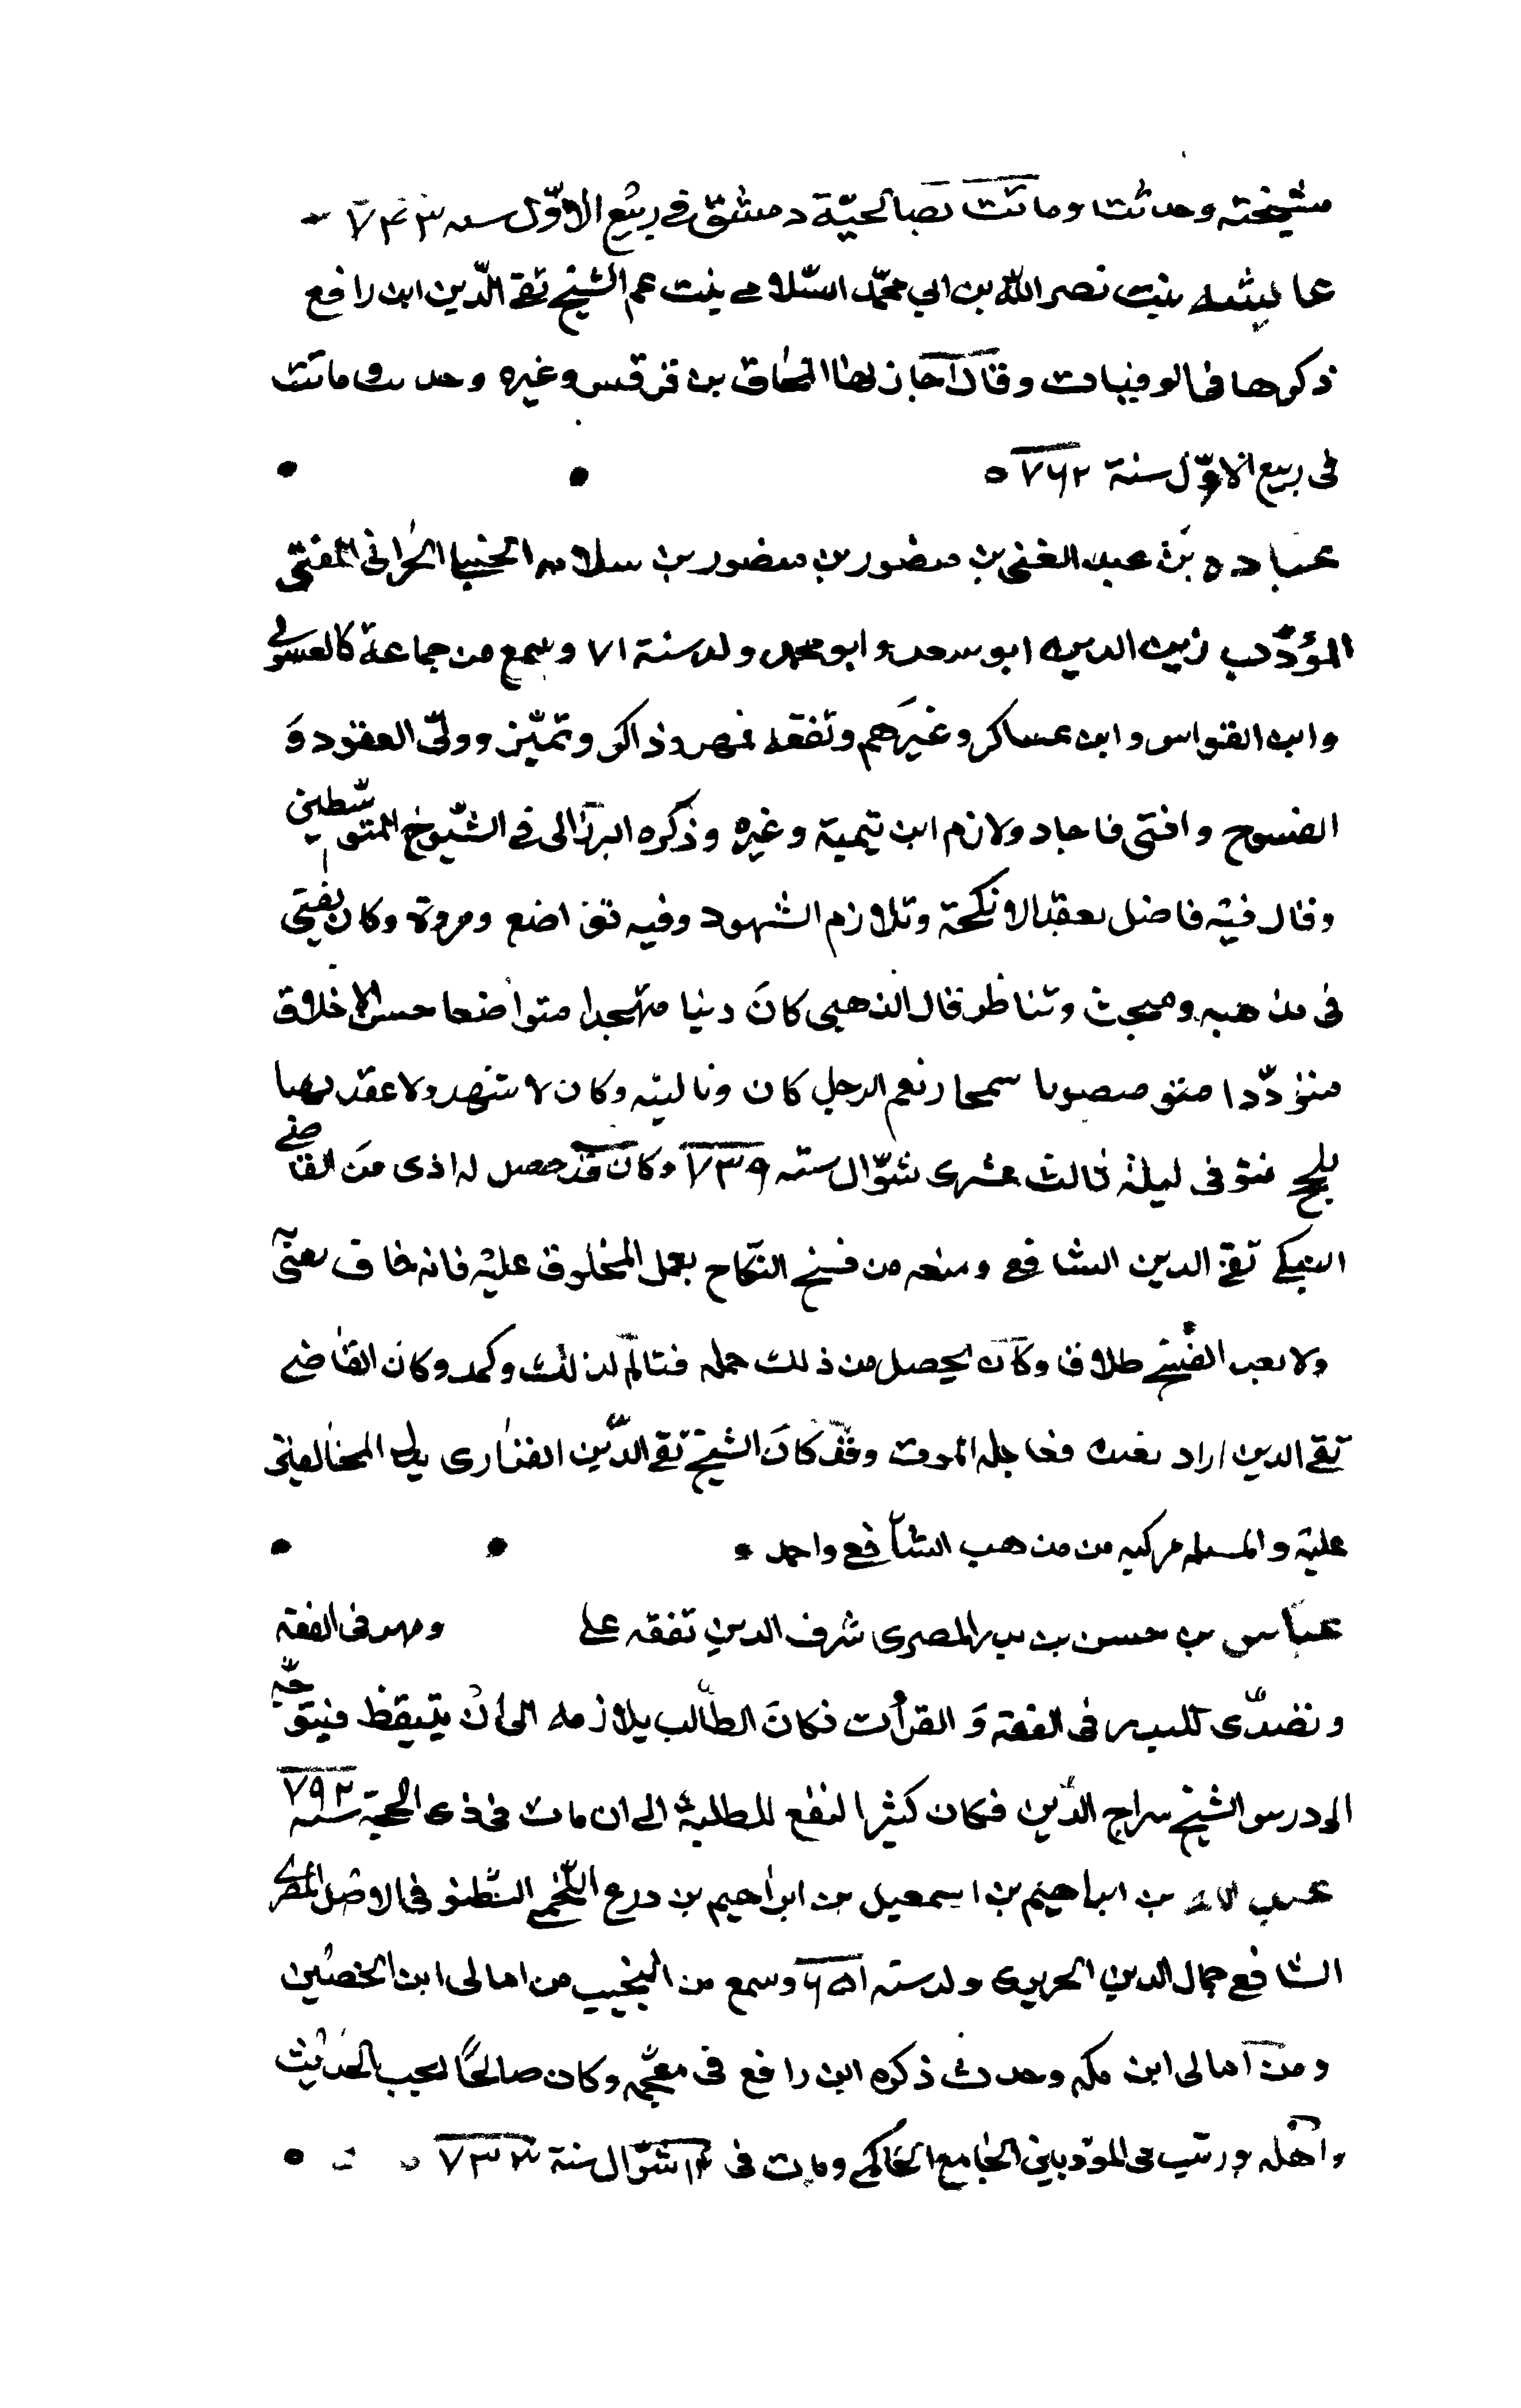 مشيخته وحدثت وماتت بصالحيّة دمشق في ربيع الاوّل سنه ٧٤٣
عايشه بنت نصر الله بن ابي محمّد السّلامي بنت عم الشيخ تقي الّدين ابن رافع
ذكرها في الوفيات وقال اجاز لها اسحاق بن قرقس وغيره وحدثت وماتت
فى ربيع الاوّل سنة ٧٦٢
عباده بن عبد الغنى بن منصور بن منصور بن سلامه الحنبلي الحرانى المفتى
المؤدب زين الدين ابو سعد وابو محمد ولد سنة ٧١ وسمع من جماعة كالغسولي
وابن القواس وابن عساكر وغيرهم وتفقه فمهر وذاكر وتميّز وولّى العقود و
الفسوح وافتى فاجاد ولازم ابن تيمية وغيره وذكره البرزالى في الشّيوخ المتوسّطين
وقال فيه فاضل يعقد الانكحة وتلازم الشهود وفيه تواضع ومروة وكان يفتى
فى مذهبه ويبحث وتناظر قال الذهبى كان دينا متهجدا متواضعا حسن الاخلاق
متودّدا متوصبا سمحا ونعم الرجل كان ونا ليته وكان لا شهد ولا عقد بها
بلج فتوفى ليلة ثالث عشرى شوّال سنه ٧٣٩ وكان قد حصل له اذى من القاضي
السبكي تقي الدين الشافعي ومنعه من فسخ النكاح بعمل المخلوق عليه فانه خاف يعنى
ولا يعد الفسخ طلاقا وكان يحصل من ذلك جمله فتالم لذلك وكمد وكان القاضي
تقي الدين اراد بعث فعاجله الموت وقد كان الشيخ تقي الدّين الفزارى يلي المخالعين
عليه والمسله مركبه من مذهب الشافعي واحمد
عباس بن حسن بن بدر المصرى شرف الدين تفقه على ومهر فى الفقه
وتصدّى للتدر فى الفقه و القرأت فكان الطالب يلازمه الى ان يتيقظ فيتوجّه
الى درس الشيخ سراج الدّين فكان كثير النفع للطلبة الى ان مات فى ذى الحجة سنه ٧٩٢
عبد الله بن ابراهيم بن اسمعيل بن ابراهيم بن درع اللّخمي الشطنوفى الاصل المقرى
الشافعي جمال الدين الحريرى ولد سنه ٦٥١ وسمع من النجيب من امالى ابن الحصين
ومن امالى ابن مله وحدث ذكره ابن رافع فى معجمه وكان صالحًا يحب الحديث
واهله ورتب فى المؤدبين الجامع الحاكمي ومات فى ١٤ شوّال سنة ٧٣٣